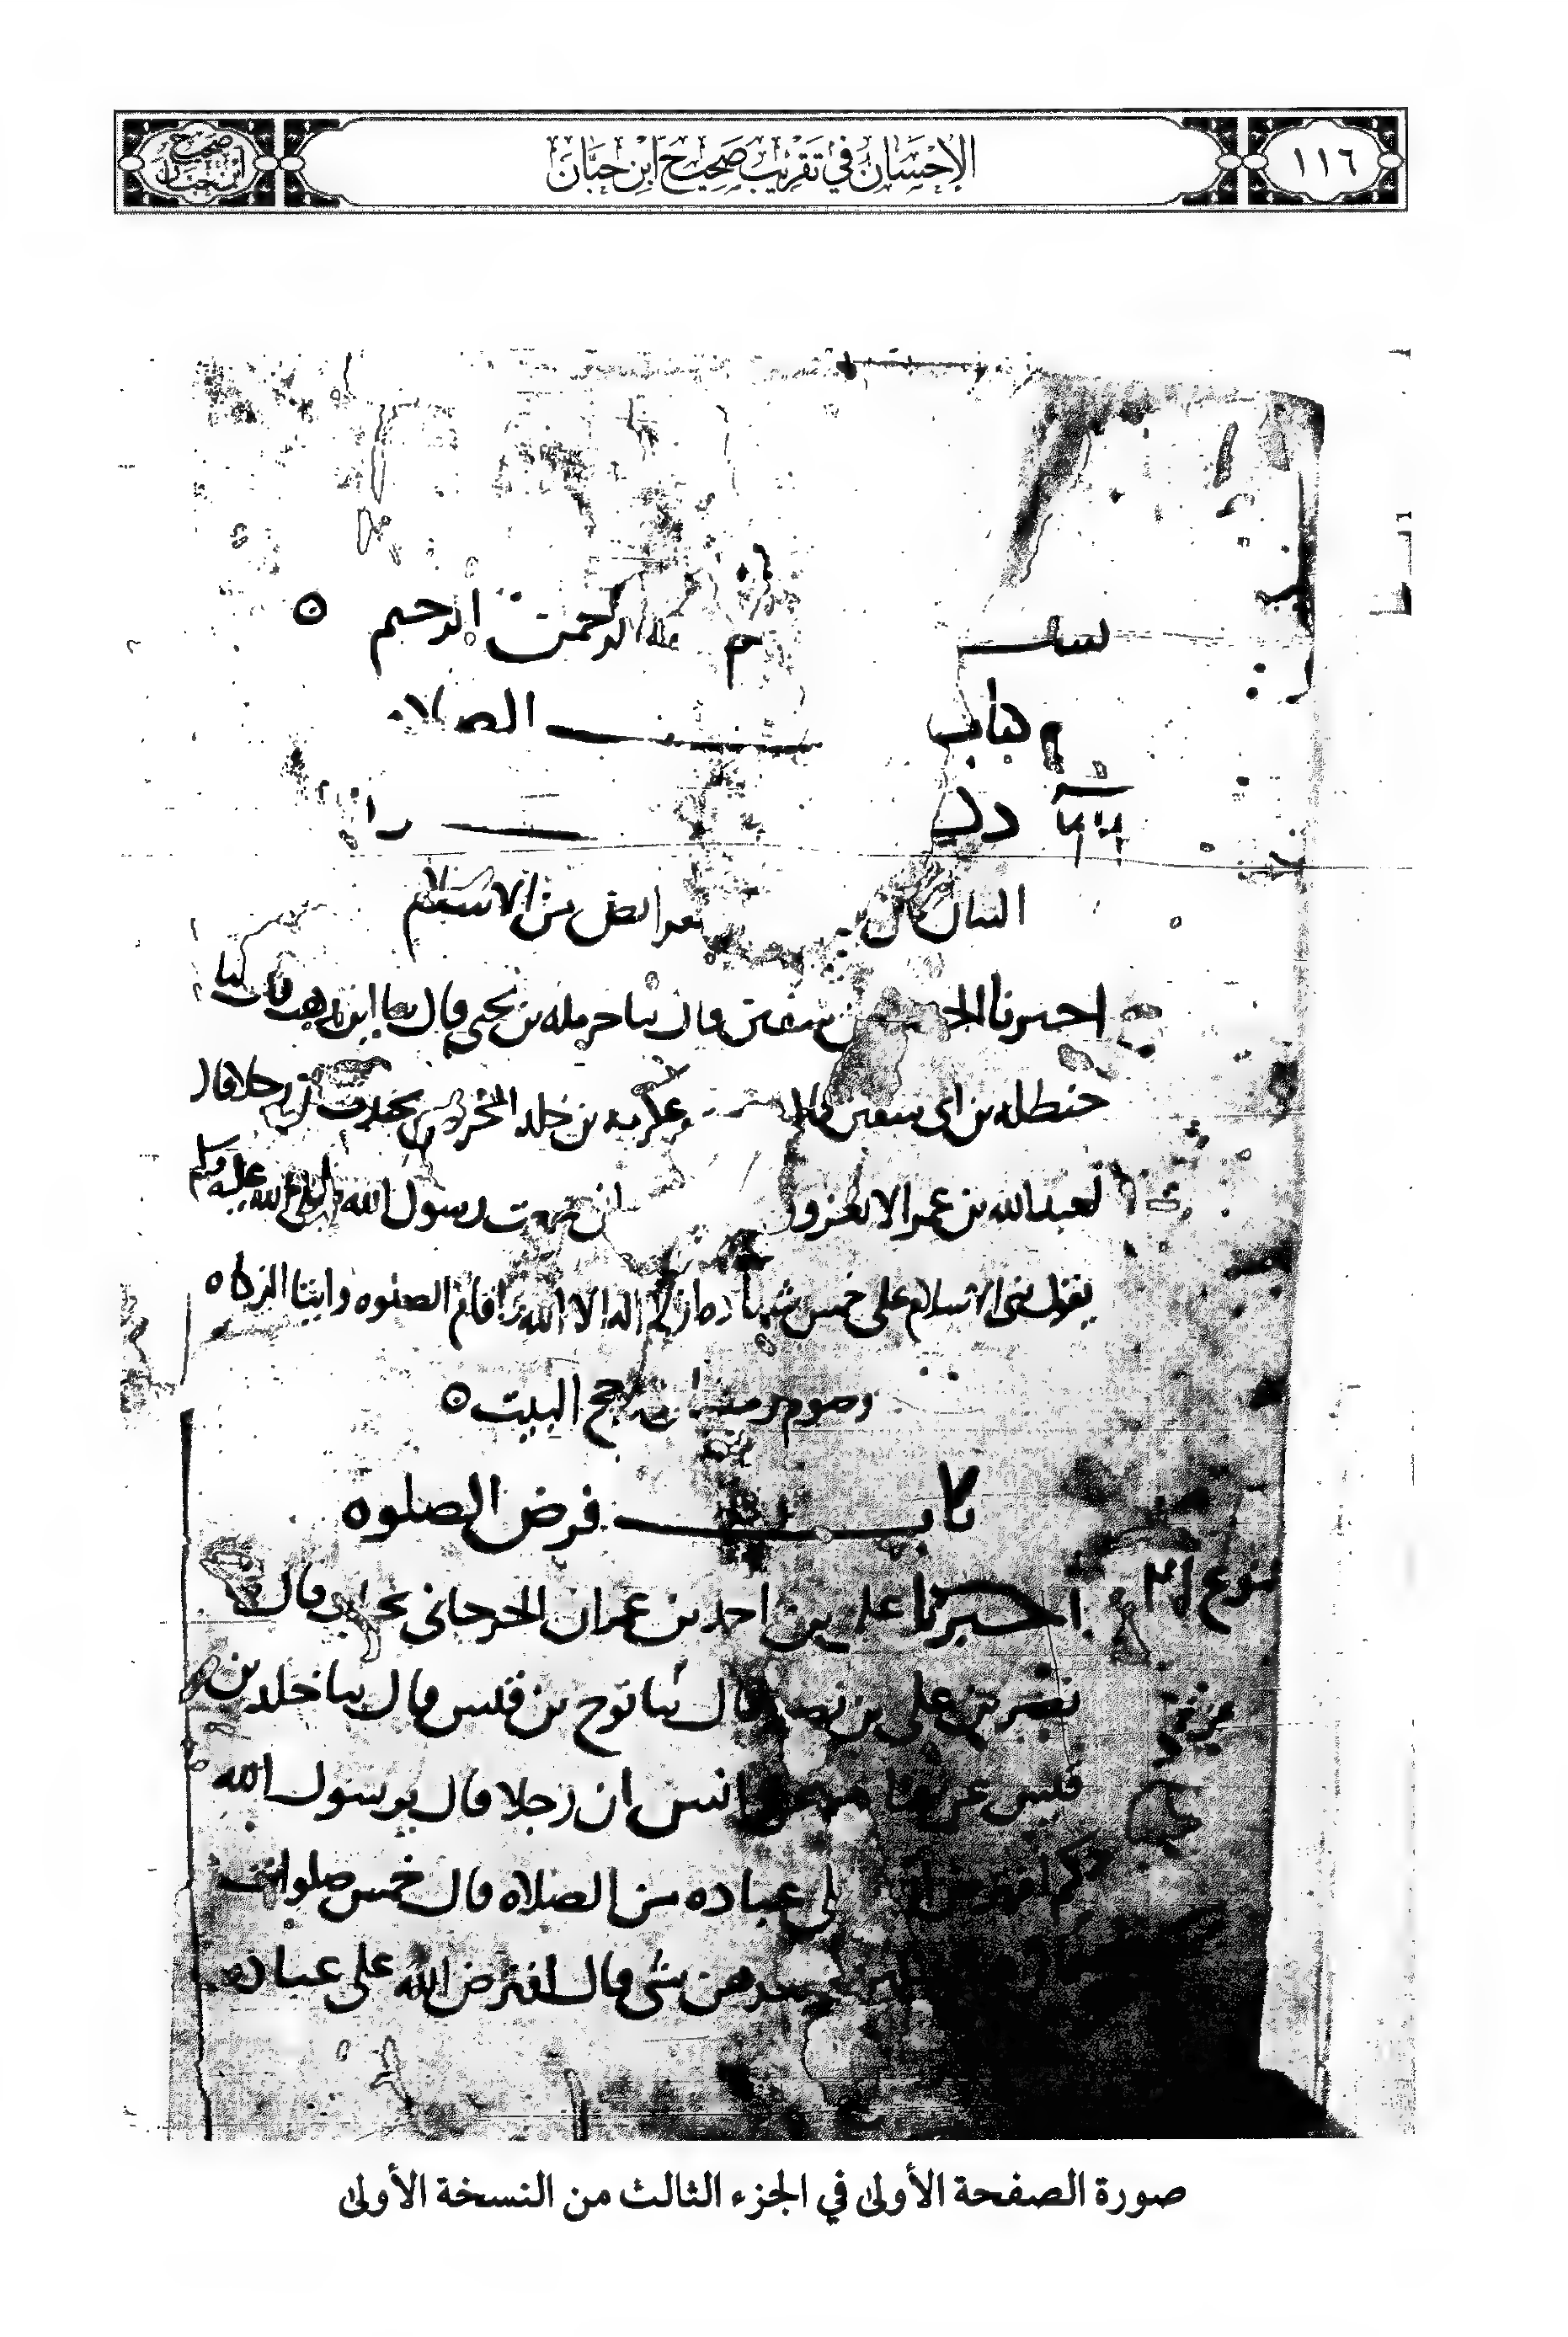 ١١٦
الإحسان في تقريب صحيح ابن حبان
صحيح ابن حبان
بسم الله الرحمن الرحيم ٥
كتاب الصلاه
ذكر
البيان من الاسلام
اخبرنا سفين قال ثنا حرمله بن يحيى قال ثنا ابن وهب قال ثنا
حنظله بن ابى سفين عكرمه بن خلد المخزومى يحدث ان رجلا قال
لعبد الله بن عمر الا تغزو انى سمعت رسول الله صلى الله عليه وسلم
يقول بنى الاسلام على خمس شهادة ان لا اله الا الله واقام الصلوه وايتا الزكاه
وصوم رمضان وحج البيت ٥
باب فرض الصلوه
نوع ٢١
اخبرنا على بن احمد بن عمران الجرجانى بحلب قال ثنا
نصر بن على بن نصر قال ثنا نوح بن قيس قال ثنا خلد بن
قيس عن قتاده عن انس ان رجلا قال يرسول الله
كم افترض على عباده من الصلاه قال خمس صلوات
بعدهن شى قال افترض الله على عباده
صورة الصفحة الأولى في الجزء الثالث من النسخة الأولى